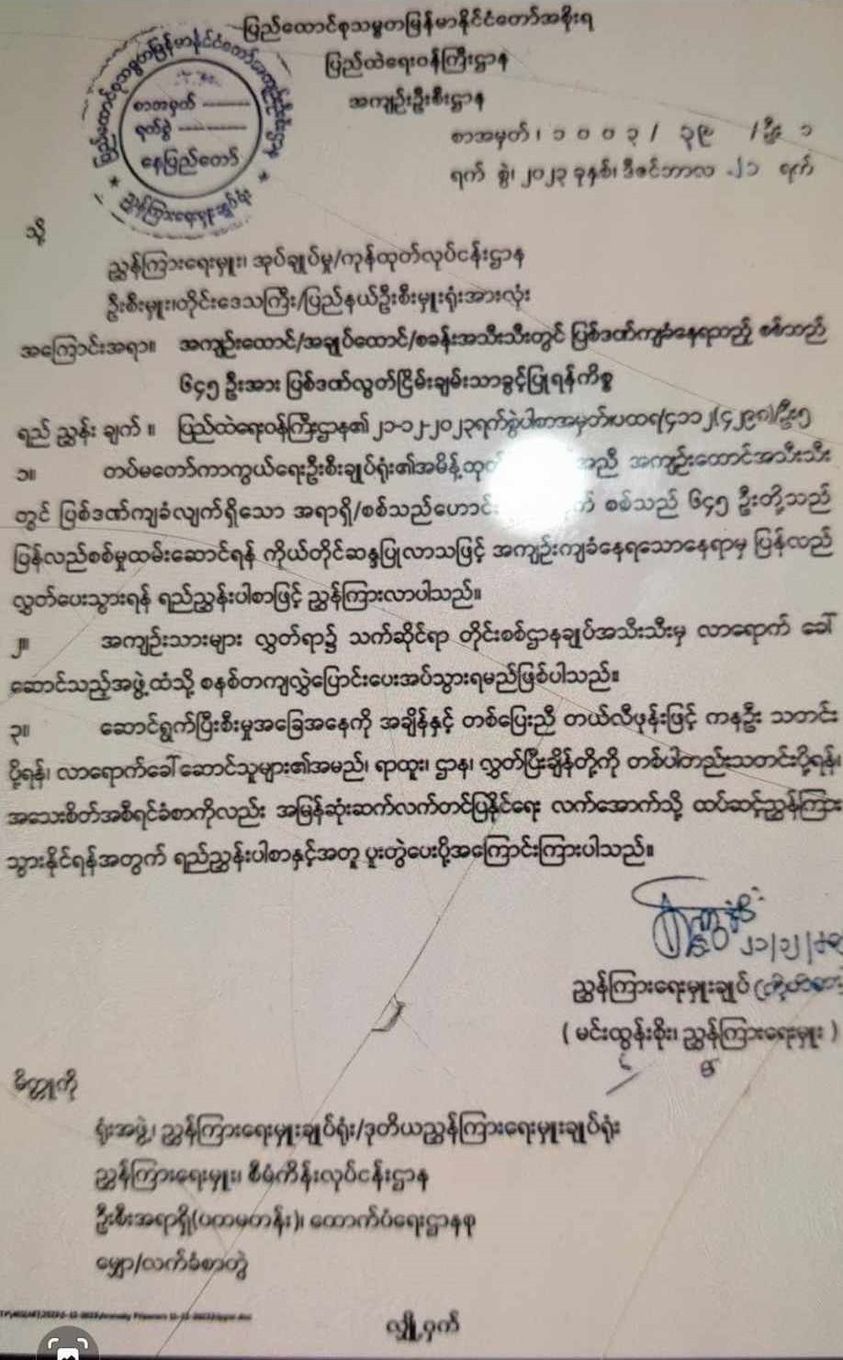 ပြည်ထောင်စုသမ္မတမြန်မာနိုင်ငံတော်အစိုးရ
ပြည်ထဲရေးဝန်ကြီးဌာန
အကျဉ်းဦးစီးဌာန
စာအမှတ်
ရက်စွဲ
နေပြည်တော်
ညွှန်ကြားရေးမှူးချုပ်ရုံး
စာအမှတ်၊ ၁၀၀၃/ ၃၉ /ဦး ၁
ရက် စွဲ၊ ၂၀၂၃ ခုနှစ်၊ ဒီဇင်ဘာလ ၂၁ ရက်
သို့
ညွှန်ကြားရေးမှူး၊ အုပ်ချုပ်မှု/ကုန်ထုတ်လုပ်ငန်းဌာန
ဦးစီးမှူး၊တိုင်းဒေသကြီး/ပြည်နယ်ဦးစီးမှူးရုံးအားလုံး
အကြောင်းအရာ။ အကျဉ်းထောင်/အချုပ်ထောင်/စခန်းအသီးသီးတွင် ပြစ်ဒဏ်ကျခံနေရသည့် စစ်သည်
၆၄၅ ဦးအား ပြစ်ဒဏ်လွတ်ငြိမ်းချမ်းသာခွင့်ပြုရန်ကိစ္စ
ရည် ညွှန်း ချက် ။ ပြည်ထဲရေးဝန်ကြီးဌာန၏ ၂၁-၁၂-၂၀၂၃ရက်စွဲပါစာအမှတ်၊ပထရ/၄၁၁၂(၄၂၉၈)/ဦး၅
၁။ တပ်မတော်ကာကွယ်ရေးဦးစီးချုပ်ရုံး၏အမိန့်ထုတ် အညီ အကျဉ်းထောင်အသီးသီး
တွင် ပြစ်ဒဏ်ကျခံလျက်ရှိသော အရာရှိ/စစ်သည်ဟောင်း စစ်သည် ၆၄၅ ဦးတို့သည်
ပြန်လည်စစ်မှုထမ်းဆောင်ရန် ကိုယ်တိုင်ဆန္ဒပြုလာသဖြင့် အကျဉ်းကျခံနေရသောနေရာမှ ပြန်လည်
လွှတ်ပေးသွားရန် ရည်ညွှန်းပါစာဖြင့် ညွှန်ကြားလာပါသည်။
၂။ အကျဉ်းသားများ လွှတ်ရာ၌ သက်ဆိုင်ရာ တိုင်းစစ်ဌာနချုပ်အသီးသီးမှ လာရောက် ခေါ်
ဆောင်သည့်အဖွဲ့ထံသို့ စနစ်တကျလွှဲပြောင်းပေးအပ်သွားရမည်ဖြစ်ပါသည်။
၃။ ဆောင်ရွက်ပြီးစီးမှုအခြေအနေကို အချိန်နှင့် တစ်ပြေးညီ တယ်လီဖုန်းဖြင့် ကနဦး သတင်း
ပို့ရန်၊ လာရောက်ခေါ်ဆောင်သူများ၏အမည်၊ ရာထူး၊ ဌာန၊ လွှတ်ပြီးချိန်တို့ကို တစ်ပါတည်းသတင်းပို့ရန်၊
အသေးစိတ်အစီရင်ခံစာကိုလည်း အမြန်ဆုံးဆက်လက်တင်ပြနိုင်ရေး လက်အောက်သို့ ထပ်ဆင့်ညွှန်ကြား
သွားနိုင်ရန်အတွက် ရည်ညွှန်းပါစာနှင့်အတူ ပူးတွဲပေးပို့အကြောင်းကြားပါသည်။
ညွှန်ကြားရေးမှူးချုပ်
( မင်းထွန်းစိုး၊ ညွှန်ကြားရေးမှူး )
မိတ္တူကို
ရုံးအဖွဲ့၊ ညွှန်ကြားရေးမှူးချုပ်ရုံး/ဒုတိယညွှန်ကြားရေးမှူးချုပ်ရုံး
ညွှန်ကြားရေးမှူး၊ စီမံကိန်းလုပ်ငန်းဌာန
ဦးစီးအရာရှိ(ပထမတန်း)၊ ထောက်ပံ့ရေးဌာနစု
မျှော/လက်ခံစာတွဲ
လျှို့ဝှက်